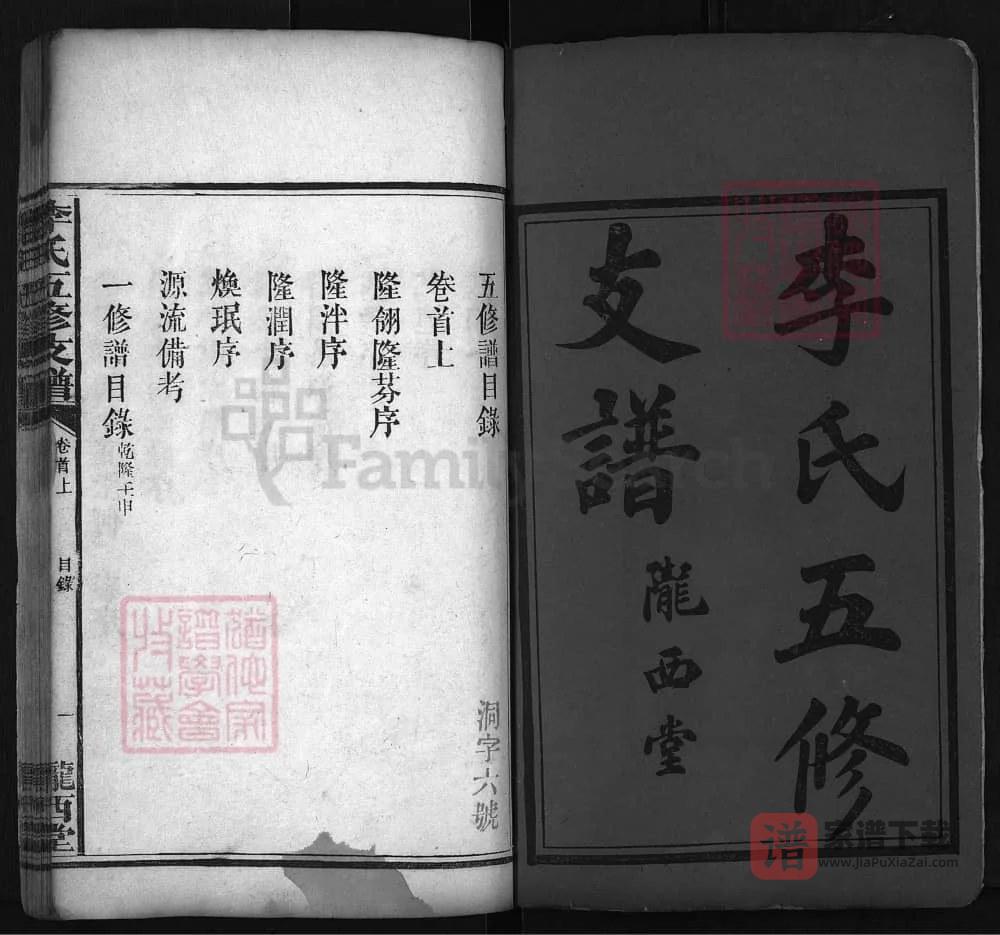 李氏五修
支譜
隴西堂
五修譜目錄
卷首上
隆翎隆芬序
隆泮序
隆潤序
煥珉序
源流備考
一修譜目錄 乾隆壬申
洞字六號
李氏五修支譜
卷首上
目錄
一
隴西堂
FamilySearch
譜學會
家谱下载
谱
www.JiaPuXiaZai.com